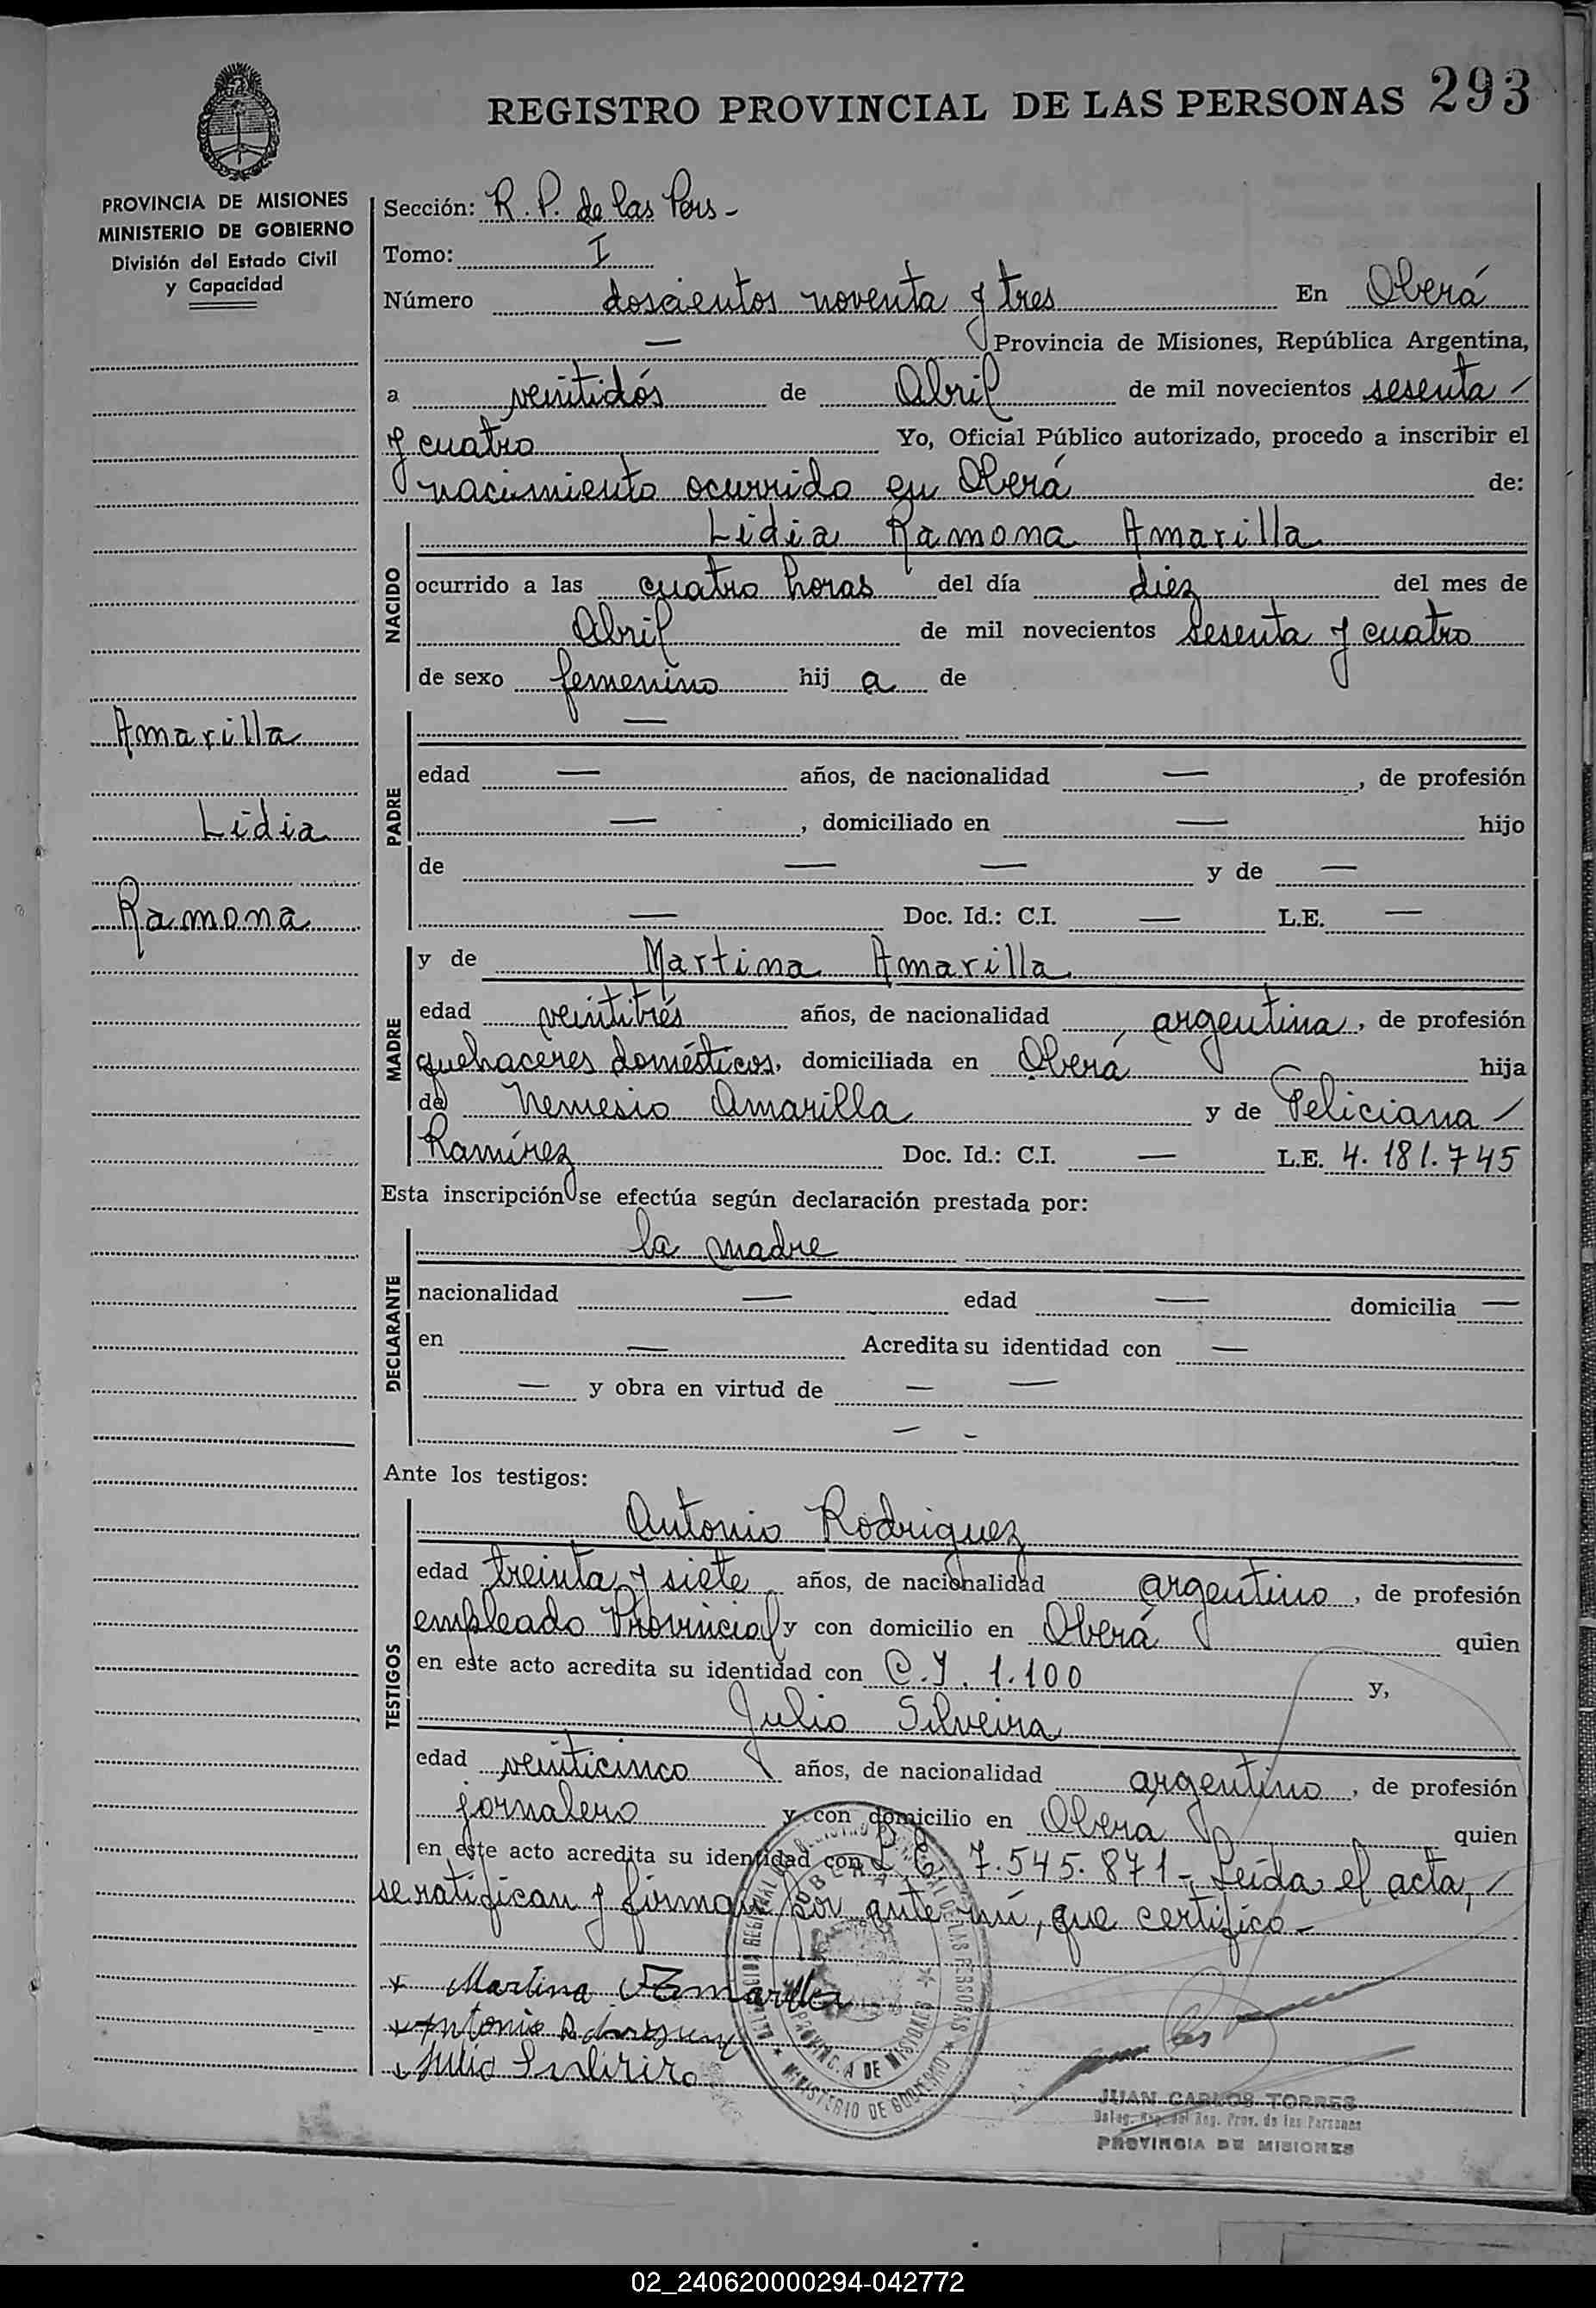 REGISTRO PROVINCIAL DE LAS PERSONAS 293
PROVINCIA DE MISIONES
MINISTERIO DE GOBIERNO
División del Estado Civil
y Capacidad
Amarilla
Lidia
Ramona
Sección: R. P. de las Pers -
Tomo: I
Número doscientos noventa y tres En Oberá
— Provincia de Misiones, República Argentina,
a veintidós de Abril de mil novecientos sesenta /
y cuatro Yo, Oficial Público autorizado, procedo a inscribir el
nacimiento ocurrido en Oberá de:
NACIDO
Lidia Ramona Amarilla
ocurrido a las cuatro horas del día diez del mes de
Abril de mil novecientos sesenta y cuatro
de sexo femenino hij a de
PADRE
—
edad — años, de nacionalidad — , de profesión
— , domiciliado en — hijo
de — — y de —
— Doc. Id.: C.I. — L.E. —
MADRE
y de Martina Amarilla
edad veintitrés años, de nacionalidad argentina , de profesión
quehaceres domésticos, domiciliada en Oberá hija
de Nemesio Amarilla y de Feliciana /
Ramírez Doc. Id.: C.I. — L.E. 4.181.745
Esta inscripción se efectúa según declaración prestada por:
DECLARANTE
la madre
nacionalidad — edad — domicilia —
en — Acredita su identidad con —
— y obra en virtud de — —
— -
Ante los testigos:
TESTIGOS
Antonio Rodriguez
edad treinta y siete años, de nacionalidad argentino , de profesión
empleado Provincial y con domicilio en Oberá quien
en este acto acredita su identidad con C.I. 1.100 y,
Julio Silveira
edad veinticinco años, de nacionalidad argentino , de profesión
jornalero y con domicilio en Oberá quien
en este acto acredita su identidad con L E 7.545.871 - Leída el acta, /
se ratifican y firman por ante mí, que certifico -
x Martina Amarilla
x Antonio Rodriguez
x Julio
OBERA
PROVINCIA DE MISIONES
MINISTERIO DE GOBIERNO
JUAN CARLOS TORRES
Deleg. Reg. del Reg. Prov. de las Personas
PROVINCIA DE MISIONES
02_240620000294-042772